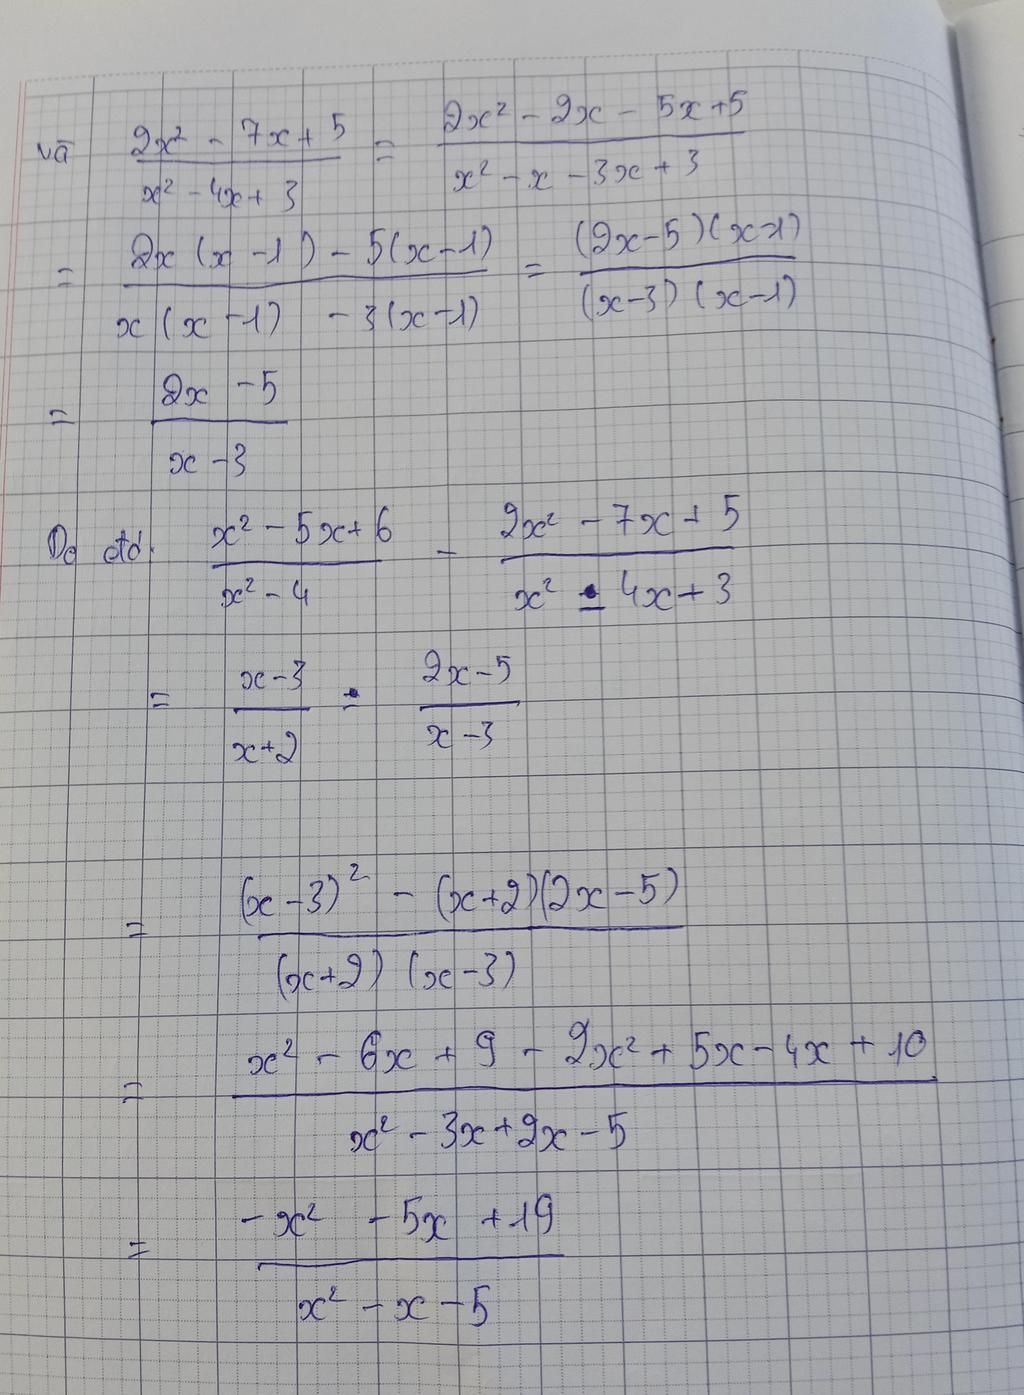 và (2x² - 7x + 5)/(x² - 4x + 3) = (2x² - 2x - 5x + 5)/(x² - x - 3x + 3)
= (2x(x - 1) - 5(x - 1))/(x(x - 1) - 3(x - 1)) = ((2x - 5)(x - 1))/((x - 3)(x - 1))
= (2x - 5)/(x - 3)
Do đó: (x² - 5x + 6)/(x² - 4) - (2x² - 7x + 5)/(x² - 4x + 3)
= (x - 3)/(x + 2) - (2x - 5)/(x - 3)
= ((x - 3)² - (x + 2)(2x - 5))/((x + 2)(x - 3))
= (x² - 6x + 9 - 2x² + 5x - 4x + 10)/(x² - 3x + 2x - 5)
= (-x² - 5x + 19)/(x² - x - 5)